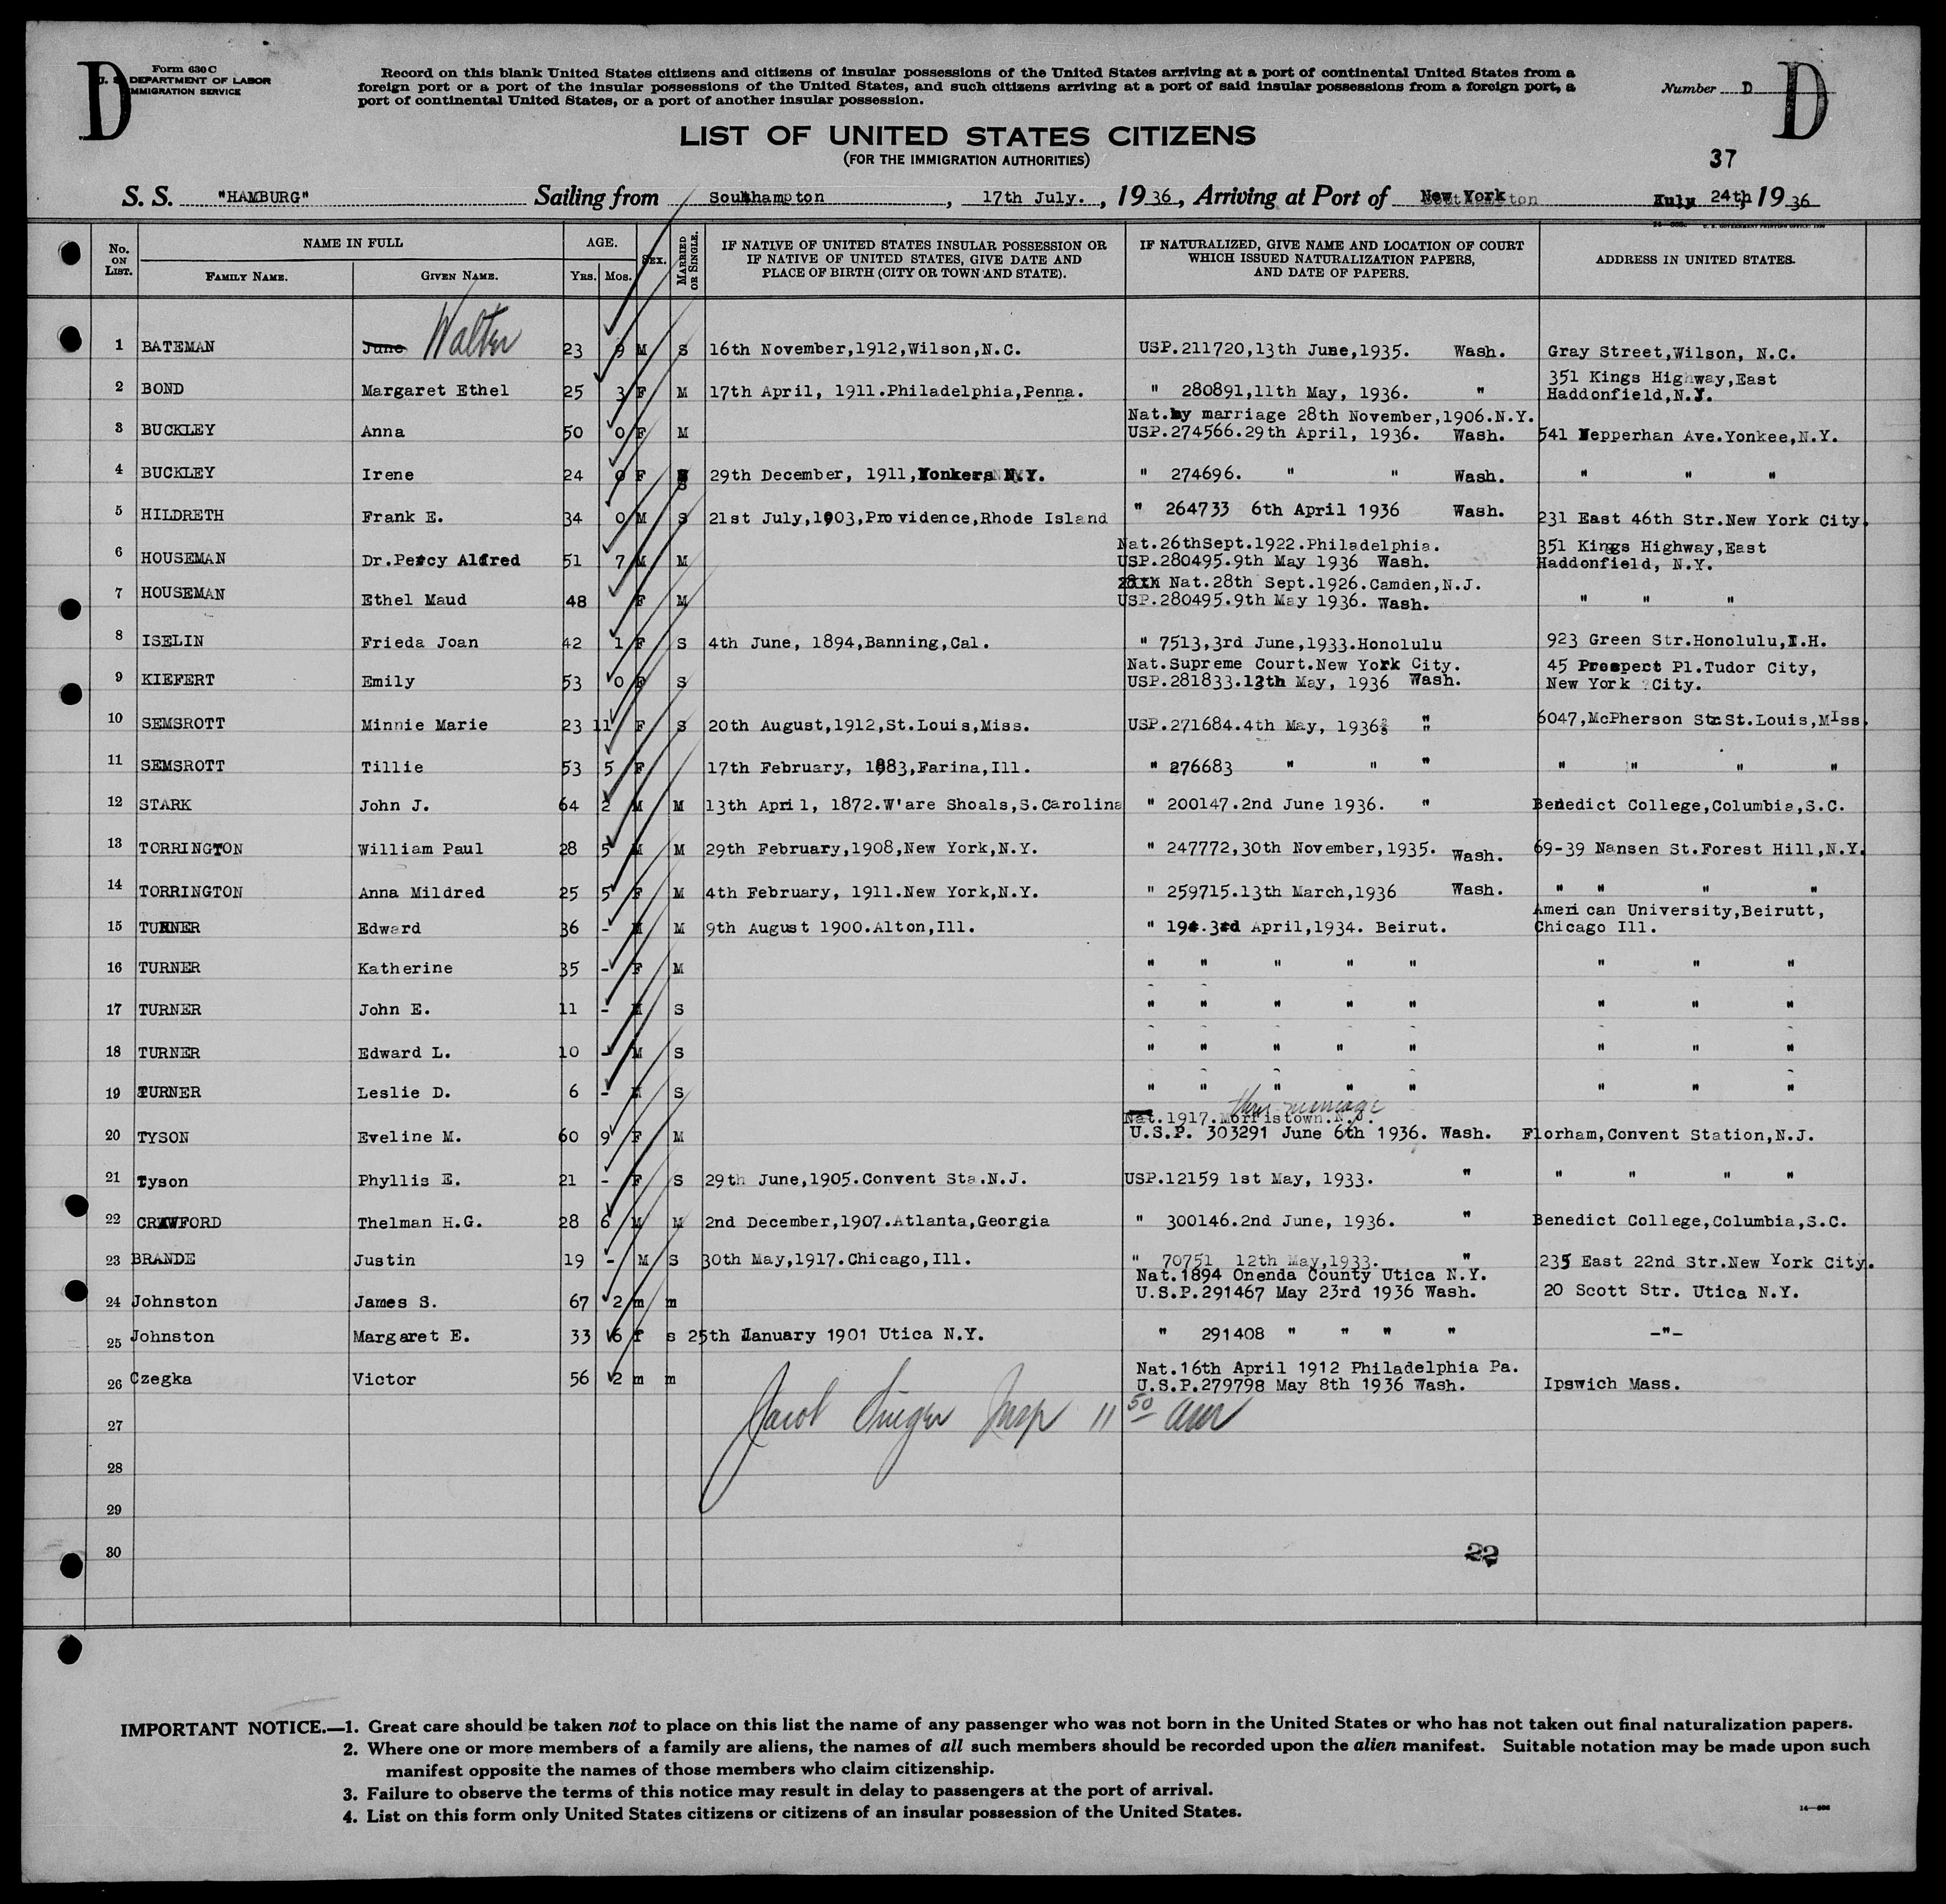 D
Form 630 C
U. S. DEPARTMENT OF LABOR
IMMIGRATION SERVICE
Record on this blank United States citizens and citizens of insular possessions of the United States arriving at a port of continental United States from a
foreign port or a port of the insular possessions of the United States, and such citizens arriving at a port of said insular possessions from a foreign port, a
port of continental United States, or a port of another insular possession.
Number D
D
LIST OF UNITED STATES CITIZENS
(FOR THE IMMIGRATION AUTHORITIES)
37
S. S. "HAMBURG" Sailing from Southampton, 17th July., 1936, Arriving at Port of New York July 24th, 1936
No. ON LIST. NAME IN FULL AGE. SEX. MARRIED OR SINGLE. IF NATIVE OF UNITED STATES INSULAR POSSESSION OR IF NATIVE OF UNITED STATES, GIVE DATE AND PLACE OF BIRTH (CITY OR TOWN AND STATE). IF NATURALIZED, GIVE NAME AND LOCATION OF COURT WHICH ISSUED NATURALIZATION PAPERS, AND DATE OF PAPERS. ADDRESS IN UNITED STATES.
FAMILY NAME. GIVEN NAME. YRS. MOS.
1 BATEMAN June Walter 23 9 M S 16th November,1912,Wilson,N.C. USP.211720,13th June,1935. Wash. Gray Street,Wilson, N.C.
351 Kings Highway,East
2 BOND Margaret Ethel 25 3 F M 17th April, 1911.Philadelphia,Penna. " 280891,11th May, 1936. " Haddonfield,N.Y.
Nat.by marriage 28th November,1906.N.Y.
3 BUCKLEY Anna 50 0 F M USP.274566.29th April, 1936. Wash. 541 Nepperhan Ave.Yonkee,N.Y.
4 BUCKLEY Irene 24 0 F S 29th December, 1911,Yonkers N.Y. " 274696. " " Wash. " " "
5 HILDRETH Frank E. 34 0 M S 21st July,1903,Providence,Rhode Island " 264733 6th April 1936 Wash. 231 East 46th Str.New York City.
Nat.26thSept.1922.Philadelphia. 351 Kings Highway,East
6 HOUSEMAN Dr.Percy Alfred 51 7 M M USP.280495.9th May 1936 Wash. Haddonfield, N.Y.
Nat.28th Sept.1926.Camden,N.J.
7 HOUSEMAN Ethel Maud 48 F M USP.280495.9th May 1936. Wash. " " "
8 ISELIN Frieda Joan 42 1 F S 4th June, 1894,Banning,Cal. " 7513,3rd June,1933.Honolulu 923 Green Str.Honolulu,T.H.
Nat.Supreme Court.New York City. 45 Prospect Pl.Tudor City,
9 KIEFERT Emily 53 0 F S USP.281833.12th May, 1936 Wash. New York City.
10 SEMSROTT Minnie Marie 23 11 F S 20th August,1912,St.Louis,Miss. USP.271684.4th May, 1936 " 6047,McPherson Str.St.Louis,MIss.
11 SEMSROTT Tillie 53 5 F 17th February, 1883,Farina,Ill. " 276683 " " " " " " "
12 STARK John J. 64 2 M M 13th April, 1872.W'are Shoals,S.Carolina " 200147.2nd June 1936. " Benedict College,Columbia,S.C.
13 TORRINGTON William Paul 28 5 M M 29th February,1908,New York,N.Y. " 247772,30th November,1935. Wash. 69-39 Nansen St.Forest Hill,N.Y.
14 TORRINGTON Anna Mildred 25 5 F M 4th February, 1911.New York,N.Y. " 259715.13th March,1936 Wash. " " " "
American University,Beirutt,
15 TURNER Edward 36 - M M 9th August 1900.Alton,Ill. " 194.3rd April,1934. Beirut. Chicago Ill.
16 TURNER Katherine 35 - F M " " " " " " " "
17 TURNER John E. 11 - M S " " " " " " " "
18 TURNER Edward L. 10 - M S " " " " " " " "
19 TURNER Leslie D. 6 - M S " " " " " " " "
Nat.1917.Morristown.N.J.
20 TYSON Eveline M. 60 9 F M U.S.P. 303291 June 6th 1936. Wash. Florham,Convent Station,N.J.
21 Tyson Phyllis E. 21 - F S 29th June,1905.Convent Sta.N.J. USP.12159 1st May, 1933. " " " " "
22 CRAWFORD Thelman H.G. 28 6 M M 2nd December,1907.Atlanta,Georgia " 300146.2nd June, 1936. " Benedict College,Columbia,S.C.
23 BRANDE Justin 19 - M S 30th May,1917.Chicago,Ill. " 70751 12th May,1933. " 235 East 22nd Str.New York City.
Nat.1894 Onenda County Utica N.Y.
24 Johnston James S. 67 2 m m U.S.P.291467 May 23rd 1936 Wash. 20 Scott Str. Utica N.Y.
25 Johnston Margaret E. 33 6 f s 25th January 1901 Utica N.Y. " 291408 " " " " -"-
Nat.16th April 1912 Philadelphia Pa.
26 Czegka Victor 56 2 m m U.S.P.279798 May 8th 1936 Wash. Ipswich Mass.
27 Insp 11 50
28
29
30 22
IMPORTANT NOTICE.—1. Great care should be taken not to place on this list the name of any passenger who was not born in the United States or who has not taken out final naturalization papers.
2. Where one or more members of a family are aliens, the names of all such members should be recorded upon the alien manifest. Suitable notation may be made upon such
manifest opposite the names of those members who claim citizenship.
3. Failure to observe the terms of this notice may result in delay to passengers at the port of arrival.
4. List on this form only United States citizens or citizens of an insular possession of the United States.